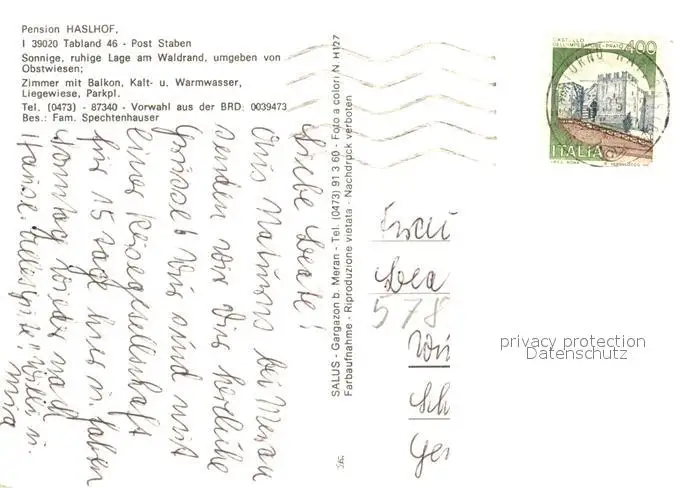 Pension HASLHOF,
I 39020 Tabland 46 - Post Staben
Sonnige, ruhige Lage am Waldrand, umgeben von
Obstwiesen;
Zimmer mit Balkon, Kalt- u. Warmwasser,
Liegewiese, Parkpl.
Tel. (0473) - 87340 - Vorwahl aus der BRD: 0039473
Bes.: Fam. Spechtenhauser
Liebe Beate!
Aus Naturns bei Meran
senden wir Dir herzliche
Grüsse! Wir sind mit
einer Reisegesellschaft
für 15 Tage hier u. fahren
Sonntag wieder nach
Hause. Willi u.
SALUS - Gargazon b. Meran - Tel. (0473) 91 3 60 - Foto a colori N. H127
Farbaufnahme - Riproduzione vietata - Nachdruck verboten
CASTELLO
DELL'IMPERATORE - PRATO
400
ITALIA
Frau
Bea
578
Wi
Sch
Ger
privacy protection
Datenschutz